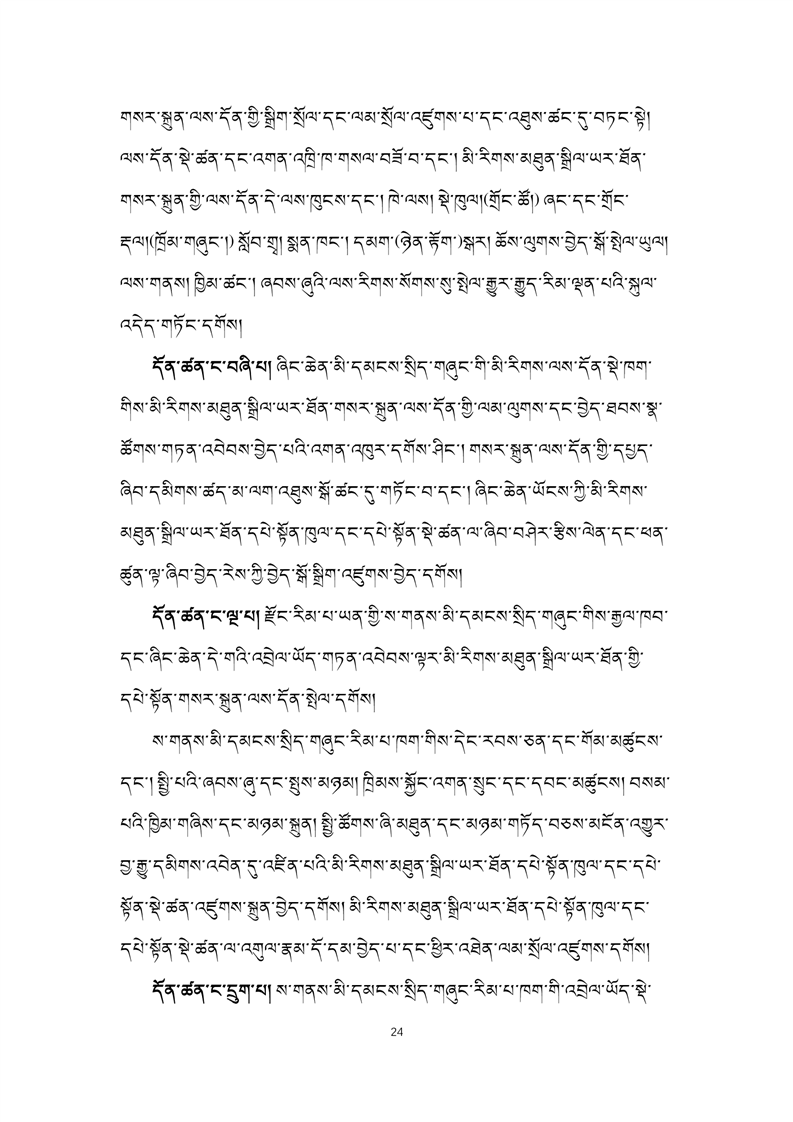 གསར་སྐྲུན་ལས་དོན་གྱི་སྒྲིག་སྲོལ་དང་ལམ་སྲོལ་འཛུགས་པ་དང་འཐུས་ཚང་དུ་བཏང་སྟེ།
ལས་དོན་སྡེ་ཚན་དང་འགན་འཁྲི་ཁ་གསལ་བཟོ་བ་དང་། མི་རིགས་མཐུན་སྒྲིལ་ཡར་ཐོན་
གསར་སྐྲུན་གྱི་ལས་དོན་དེ་ལས་ཁུངས་དང་། ཁེ་ལས། སྡེ་ཁུལ།(གྲོང་ཚོ།) ཞང་དང་གྲོང་
རྡལ།(ཁྲོམ་གཞུང་།) སློབ་གྲྭ། སྨན་ཁང་། དམག་(ཉེན་རྟོག་)སྒར། ཆོས་ལུགས་བྱེད་སྒོ་སྤེལ་ཡུལ།
ལས་གནས། ཁྱིམ་ཚང་། ཞབས་ཞུའི་ལས་རིགས་སོགས་སུ་སྤེལ་རྒྱུར་རྒྱུད་རིམ་ལྡན་པའི་སྐུལ་
འདེད་གཏོང་དགོས།
དོན་ཚན་ང་བཞི་པ། ཞིང་ཆེན་མི་དམངས་སྲིད་གཞུང་གི་མི་རིགས་ལས་དོན་སྡེ་ཁག་
གིས་མི་རིགས་མཐུན་སྒྲིལ་ཡར་ཐོན་གསར་སྐྲུན་ལས་དོན་གྱི་ལམ་ལུགས་དང་བྱེད་ཐབས་སྣ་
ཚོགས་གཏན་འབེབས་བྱེད་པའི་འགན་འཁུར་དགོས་ཤིང་། གསར་སྐྲུན་ལས་དོན་གྱི་དཔྱད་
ཞིབ་དམིགས་ཚད་མ་ལག་འཐུས་སྒོ་ཚང་དུ་གཏོང་བ་དང་། ཞིང་ཆེན་ཡོངས་ཀྱི་མི་རིགས་
མཐུན་སྒྲིལ་ཡར་ཐོན་དཔེ་སྟོན་ཁུལ་དང་དཔེ་སྟོན་སྡེ་ཚན་ལ་ཞིབ་བཤེར་རྩིས་ལེན་དང་ཕན་
ཚུན་ལྟ་ཞིབ་བྱེད་རེས་ཀྱི་བྱེད་སྒོ་སྒྲིག་འཛུགས་བྱེད་དགོས།
དོན་ཚན་ང་ལྔ་པ། རྫོང་རིམ་པ་ཡན་གྱི་ས་གནས་མི་དམངས་སྲིད་གཞུང་གིས་རྒྱལ་ཁབ་
དང་ཞིང་ཆེན་དེ་གའི་འབྲེལ་ཡོད་གཏན་འབེབས་ལྟར་མི་རིགས་མཐུན་སྒྲིལ་ཡར་ཐོན་གྱི་
དཔེ་སྟོན་གསར་སྐྲུན་ལས་དོན་སྤེལ་དགོས།
ས་གནས་མི་དམངས་སྲིད་གཞུང་རིམ་པ་ཁག་གིས་དེང་རབས་ཅན་དང་གོམ་མཚུངས་
དང་། སྤྱི་པའི་ཞབས་ཞུ་དང་སྤུས་མཉམ། ཁྲིམས་སྐྱོང་འགན་སྲུང་དང་དབང་མཚུངས། བསམ་
པའི་ཁྱིམ་གཞིས་དང་མཉམ་སྐྲུན། སྤྱི་ཚོགས་ཞི་མཐུན་དང་མཉམ་གཏོད་བཅས་མངོན་འགྱུར་
བྱ་རྒྱུ་དམིགས་འབེན་དུ་འཛིན་པའི་མི་རིགས་མཐུན་སྒྲིལ་ཡར་ཐོན་དཔེ་སྟོན་ཁུལ་དང་དཔེ་
སྟོན་སྡེ་ཚན་འཛུགས་སྐྲུན་བྱེད་དགོས། མི་རིགས་མཐུན་སྒྲིལ་ཡར་ཐོན་དཔེ་སྟོན་ཁུལ་དང་
དཔེ་སྟོན་སྡེ་ཚན་ལ་འགུལ་རྣམ་དོ་དམ་བྱེད་པ་དང་ཕྱིར་འཐེན་ལམ་སྲོལ་འཛུགས་དགོས།
དོན་ཚན་ང་དྲུག་པ། ས་གནས་མི་དམངས་སྲིད་གཞུང་རིམ་པ་ཁག་གི་འབྲེལ་ཡོད་སྡེ་
24